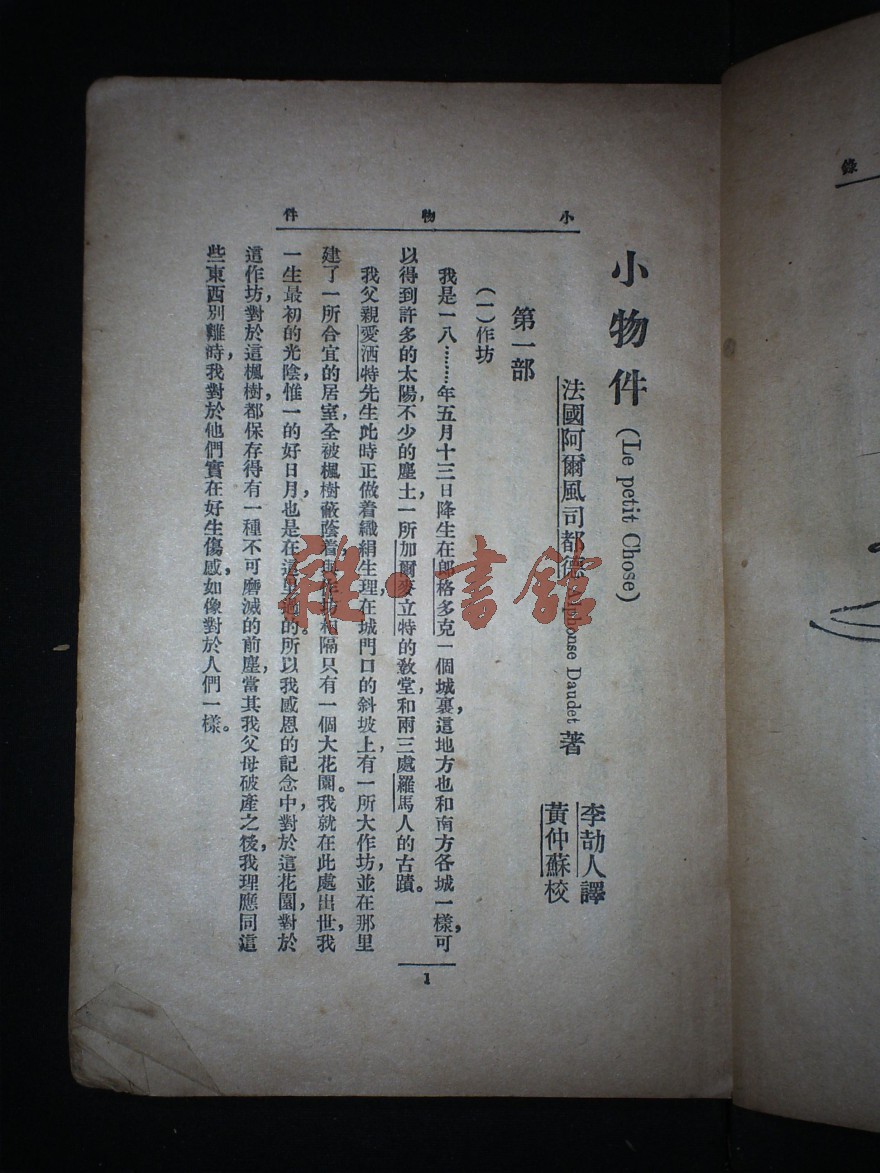 小物件
小物件(Le petit Chose)
法國阿爾風司都德 Alphonse Daudet 著
李劼人譯
黃仲蘇校
第一部
(一)作坊
我是一八………年五月十三日降生在郎格多克一個城裏,這地方也和南方各城一樣,可
以得到許多的太陽,不少的塵土,一所加爾麥立特的敎堂,和兩三處羅馬人的古蹟。
我父親愛洒特先生此時正做着織絹生理,在城門口的斜坡上,有一所大作坊,並在那里
建了一所合宜的居室,全被楓樹蔽蔭着,與作坊相隔只有一個大花園。我就在此處出世,我
一生最初的光陰,惟一的好日月,也是在這里過的。所以我感恩的記念中,對於這花園,對於
這作坊,對於這楓樹,都保存得有一種不可磨滅的前塵,當其我父母破產之後,我理應同這
些東西別離時,我對於他們實在好生傷感,如像對於人們一樣。
1
錄
雜·書館